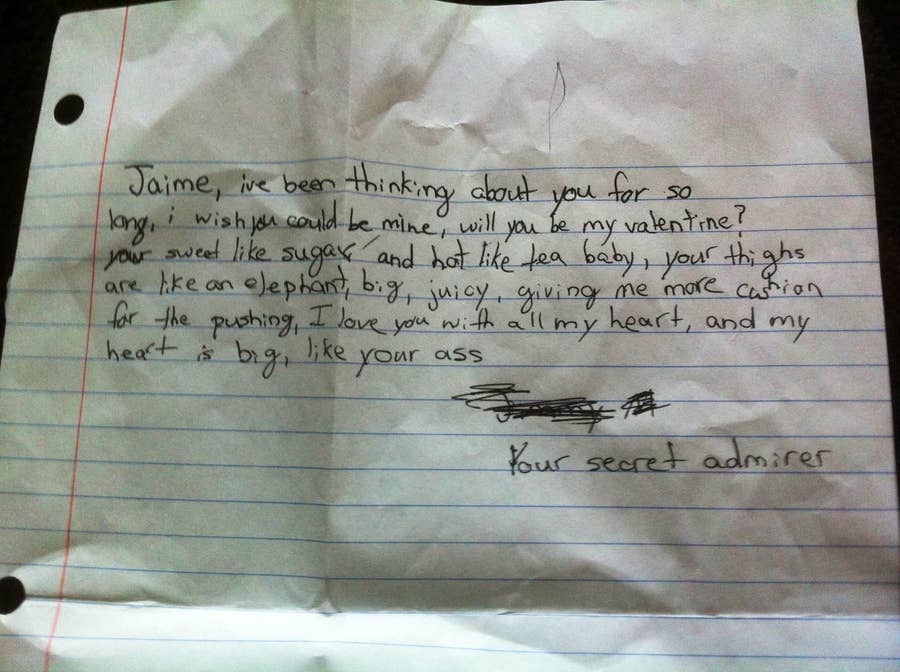 Jaime, ive been thinking about you for so
long, i wish you could be mine, will you be my valentine?
your sweet like sugar, and hot like tea baby, your thighs
are like an elephant, big, juicy, giving me more cushion
for the pushing, I love you with all my heart, and my
heart is big, like your ass
Your secret admirer